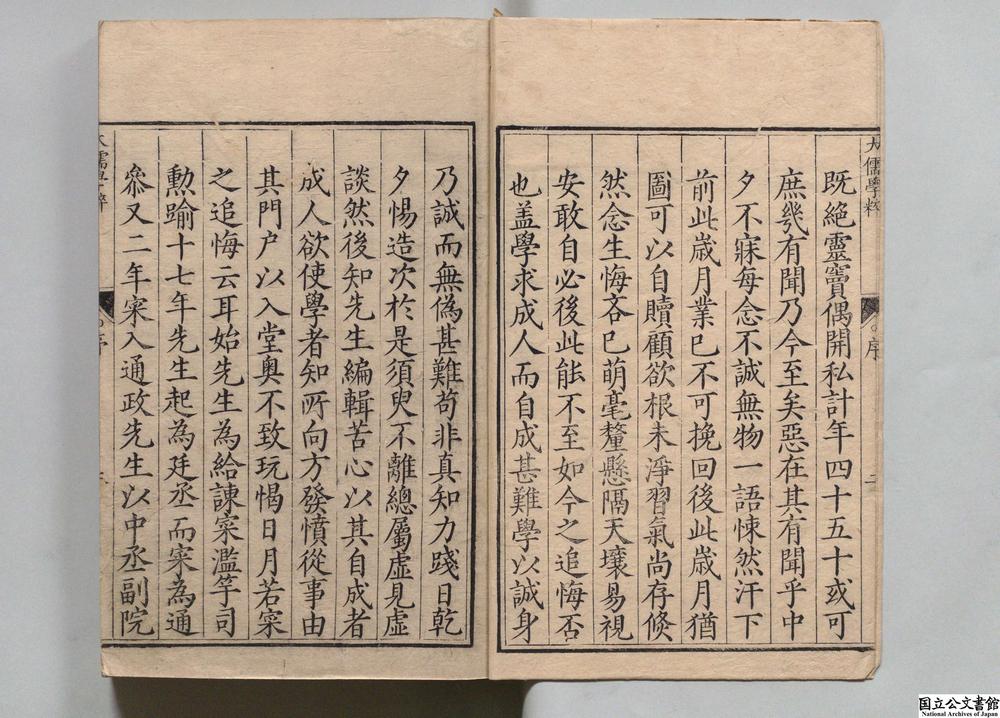 大儒學粹
序
二
既絕靈竇偶開私計年四十五十或可
庶幾有聞乃今至矣惡在其有聞乎中
夕不寐每念不誠無物一語悚然汗下
前此歲月業已不可挽回後此歲月猶
圖可以自贖顧欲根未淨習氣尚存倐
然念生悔吝已萌毫釐懸隔天壤易視
安敢自必後此能不至如今之追悔否
也盖學求成人而自成甚難學以誠身
乃誠而無偽甚難苟非真知力踐日乾
夕惕造次於是須臾不離總屬虛見虛
談然後知先生編輯苦心以其自成者
成人欲使學者知所向方發憤從事由
其門户以入堂奥不致玩愒日月若寀
之追悔云耳始先生為給諫寀濫竽司
勲踰十七年先生起為廷丞而寀為通
叅又二年寀入通政先生以中丞副院
大儒學粹
序
国立公文書館
National Archives of Japan